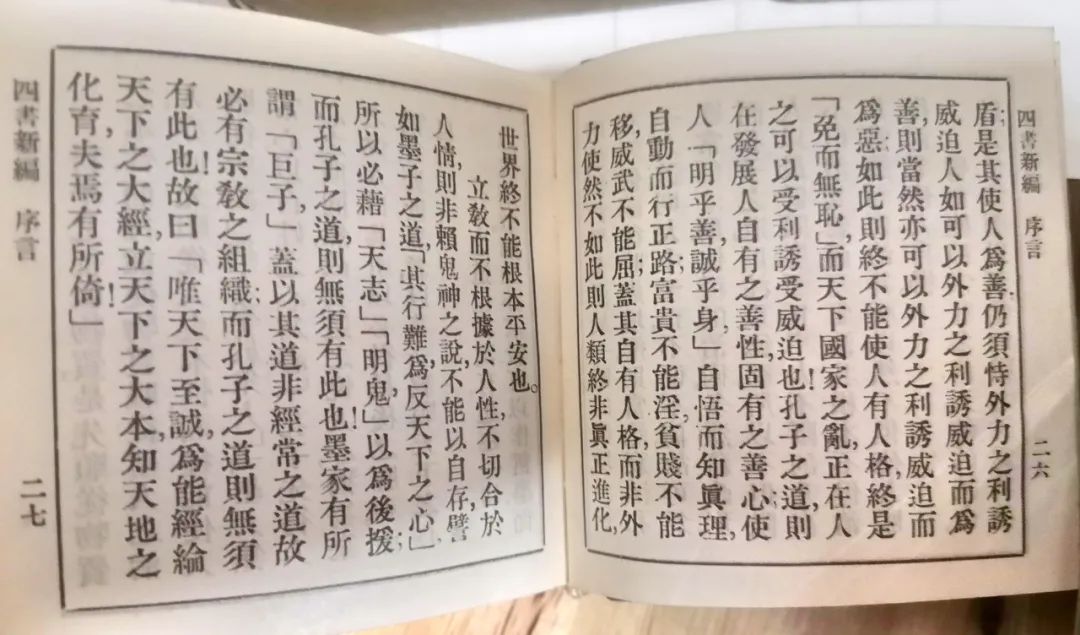 四書新編 序言 二六
盾;是其使人爲善,仍須恃外力之利誘
威迫,人如可以外力之利誘威迫而爲
善,則當然亦可以外力之利誘威迫而
爲惡;如此則終不能使人有人格,終是
「免而無恥」而天下國家之亂,正在人
之可以受利誘受威迫也!孔子之道,則
在發展人自有之善性,固有之善心,使
人「明乎善,誠乎身」自悟而知眞理,
自動而行正路,富貴不能淫,貧賤不能
移,威武不能屈;蓋其自有人格,而非外
力使然,不如此,則人類終非眞正進化,
世界終不能根本平安也。
立敎而不根據於人性,不切合於
人情,則非賴鬼神之說,不能以自存,譬
如墨子之道,「其行難爲,反天下之心」
所以必藉「天志」「明鬼」以爲後援;
而孔子之道,則無須有此也!墨家有所
謂「巨子,」蓋以其道非經常之道,故
必有宗敎之組織;而孔子之道,則無須
有此也!故曰「唯天下至誠,爲能經綸
天下之大經,立天下之大本,知天地之
化育,夫焉有所倚!」
四書新編 序言 二七